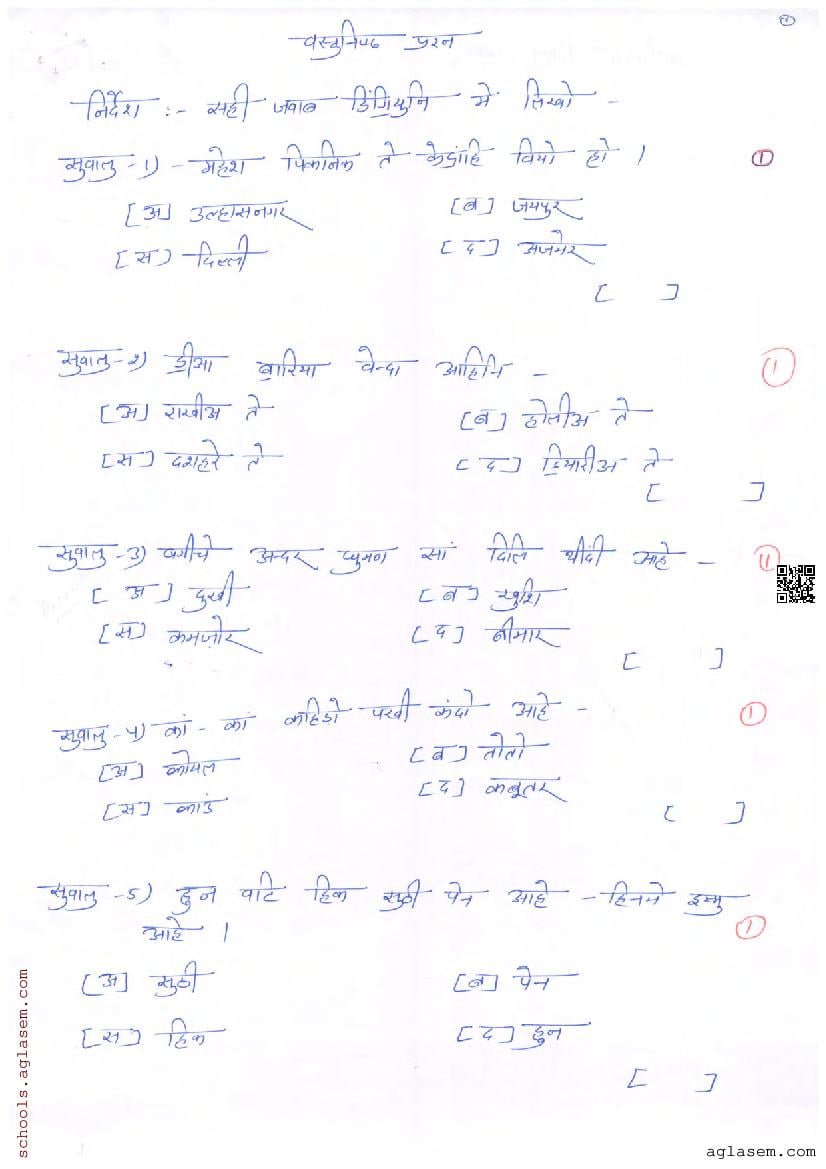 वस्तुनिष्ठ प्रश्न
निर्देश :- सही जवाब डिंगियुनि में लिखो -
सुवालु -1) - महेश पिकनिक ते केडांहि वियो हो । 1
[अ] उल्हासनगर [ब] जयपुर
[स] दिल्ली [द] अजमेर
[ ]
सुवालु -२) डीआ बारिया वेन्दा आहिनि - 1
[अ] राखीअ ते [ब] होलीअ ते
[स] दशहरे ते [द] डियारीअ ते
[ ]
सुवालु -3) बगीचे अन्दर घुमण सां दिलि थींदी आहे -
[अ] दुखी [ब] खुशि
[स] कमज़ोर [द] बीमार
[ ]
सुवालु -५) कां - कां कहिडो पखी कंदो आहे - 1
[अ] कोयल [ब] तोतो
[स] कांउ [द] कबूतर
[ ]
सुवालु -5) हुन वटि हिक सुठी पेन आहे - हिनमे इस्मु
आहे । 1
[अ] सुठी [ब] पेन
[स] हिक [द] हुन
[ ]
schools.aglasem.com
aglasem.com